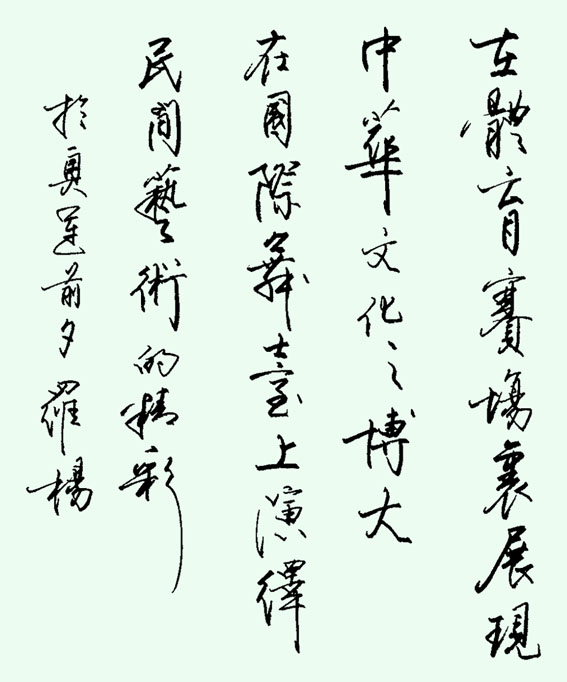 在體育賽場裏展現
中華文化之博大
在國際舞臺上演繹
民间藝術的精彩
於奧運前夕 羅楊